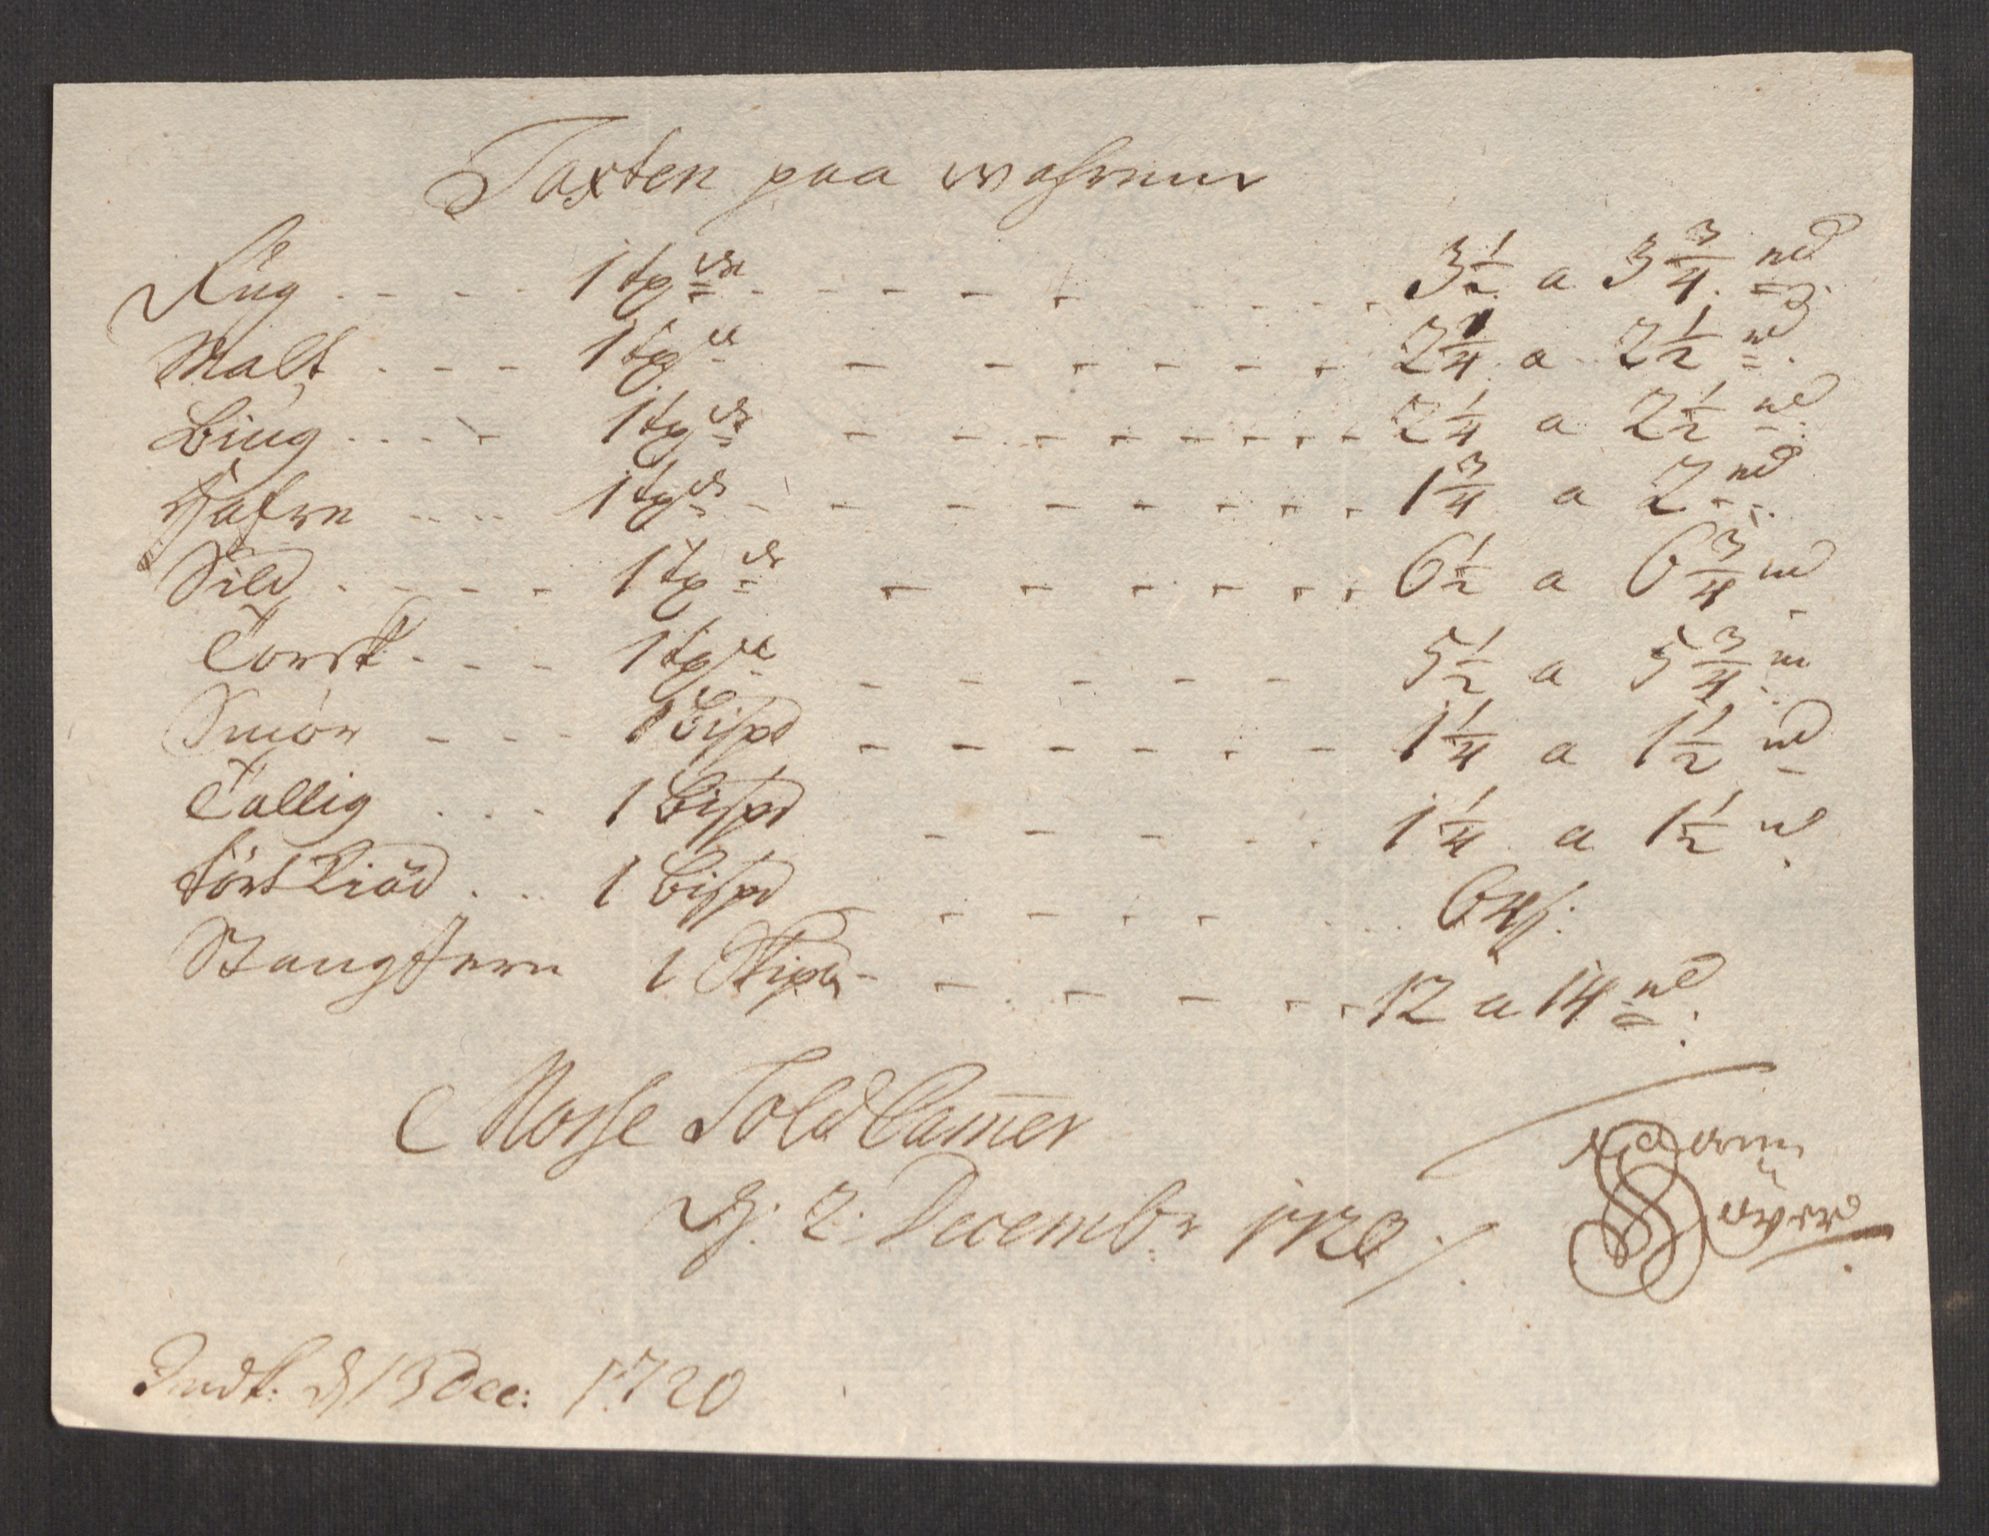 Taxten paa wahrene
Rüg .... 1 tg 3½ a 3¾ rd
Malt .... 1 tg 2¼ a 2½ rd
Biug .... 1 tg 2¼ a 2½ rd
Hafre .... 1 tg 1¾ a 2 rd
Sild .... 1 tg 6½ a 6¾ rd
Torsk .... 1 tg 5½ a 5¾ rd
Smör .... 1 Bispd 1¼ a 1½ rd
Tallig .... 1 Bispd 1¼ a 1½ rd
tört Kiöd .. 1 Bispd
Stang Jern 1 Skipd 12 a 14 rd
Mosse Told Cam̄er
d: 2: Decembr 1720
Indk: d 13 Dec: 1720